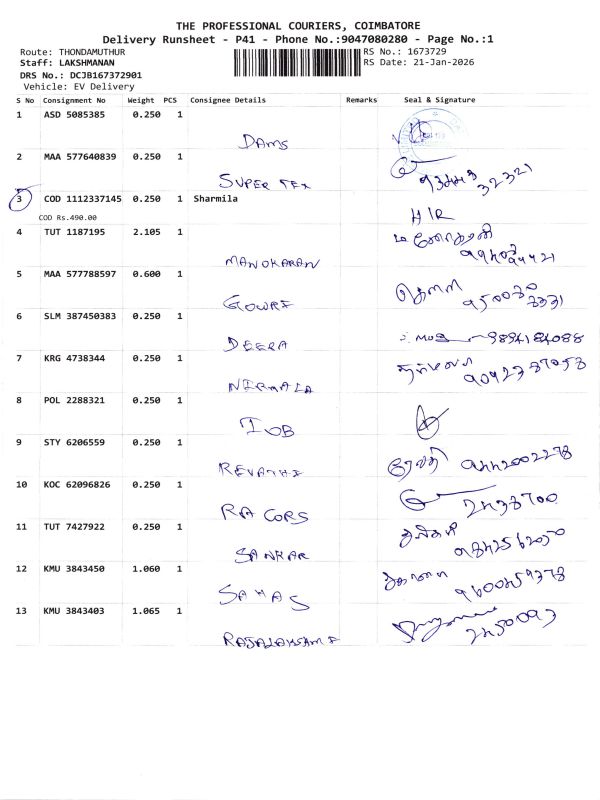 THE PROFESSIONAL COURIERS, COIMBATORE
Delivery Runsheet - P41 - Phone No.:9047080280 - Page No.:1
Route: THONDAMUTHUR RS No.: 1673729
Staff: LAKSHMANAN RS Date: 21-Jan-2026
DRS No.: DCJB167372901
Vehicle: EV Delivery
S No Consignment No Weight PCS Consignee Details Remarks Seal & Signature
1 ASD 5085385 0.250 1
DAMS
2 MAA 577640839 0.250 1
SUPER TEX
3 COD 1112337145 0.250 1 Sharmila
COD Rs.490.00 H/R
4 TUT 1187195 2.105 1
MANOKARAN
5 MAA 577788597 0.600 1
GOWRI
6 SLM 387450383 0.250 1
DEERA 9894184088
7 KRG 4738344 0.250 1
NIRMALA 9042787053
8 POL 2288321 0.250 1
IOB
9 STY 6206559 0.250 1
REVATHI ரேவதி 9442002278
10 KOC 62096826 0.250 1
RA CORS 2438700
11 TUT 7427922 0.250 1
SANKAR
12 KMU 3843450 1.060 1
SAHAS
13 KMU 3843403 1.065 1
RAJALAKSHMI 2450093